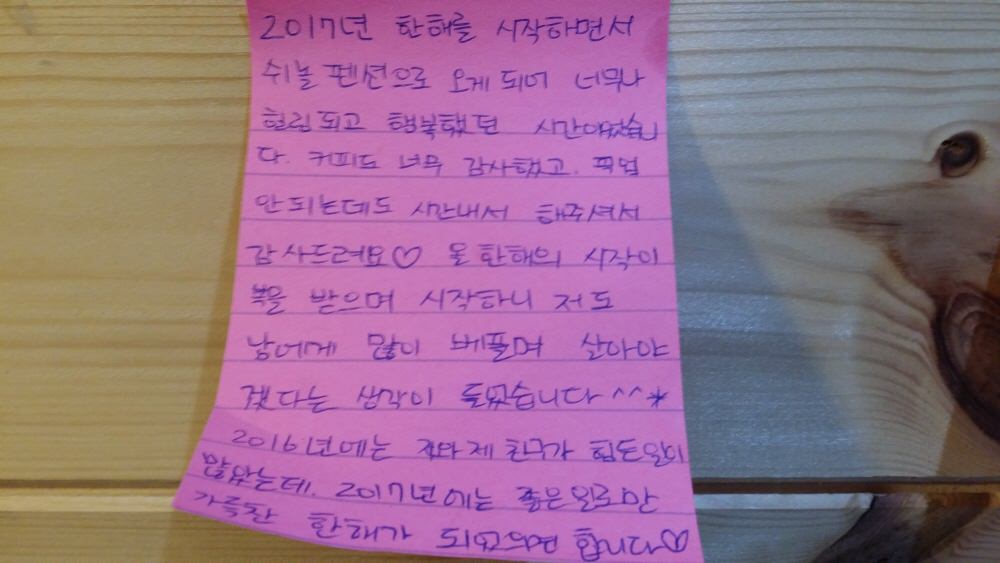 2017년 한해를 시작하면서
쉬놀펜션으로 오게되어 너무나
힐링되고 행복했던 시간이였습니
다. 커피도 너무 감사했고. 픽업
안되는데도 시간내서 해주셔서
감사드려요♡ 올한해의 시작이
복을 받으며 시작하니 저도
남에게 많이 베풀며 살아야
겠다는 생각이 들었습니다^^*
2016년에는 저와 제 친구가 힘든일이
많았는데. 2017년에는 좋은일로만
가득찬 한해가 되었으면 합니다♡